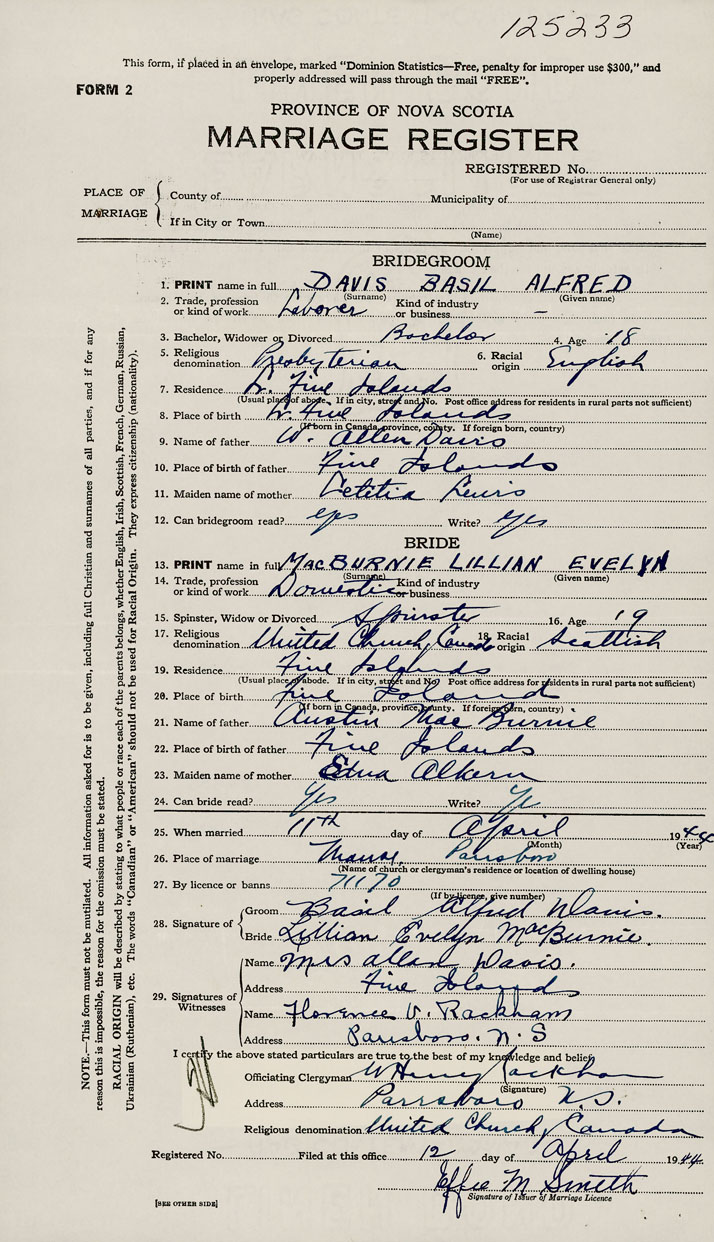 125233
This form, if placed in an envelope, marked "Dominion Statistics—Free, penalty for improper use $300," and
properly addressed will pass through the mail "FREE".
FORM 2
PROVINCE OF NOVA SCOTIA
MARRIAGE REGISTER
REGISTERED No.
(For use of Registrar General only)
PLACE OF MARRIAGE
County of Municipality of
If in City or Town
(Name)
BRIDEGROOM
1. PRINT name in full DAVIS BASIL ALFRED
(Surname) (Given name)
2. Trade, profession or kind of work Laborer Kind of industry or business —
3. Bachelor, Widower or Divorced Bachelor 4. Age 18
5. Religious denomination Presbyterian 6. Racial origin English
7. Residence Lr. Five Islands
(Usual place of abode. If in city, street and No. Post office address for residents in rural parts not sufficient)
8. Place of birth Lr. Five Islands
(If born in Canada, province, county. If foreign born, country)
9. Name of father W. Allen Davis
10. Place of birth of father Five Islands
11. Maiden name of mother Letitia Lewis
12. Can bridegroom read? yes Write? yes
BRIDE
13. PRINT name in full MACBURNIE LILLIAN EVELYN
(Surname) (Given name)
14. Trade, profession or kind of work Domestic Kind of industry or business
15. Spinster, Widow or Divorced Spinster 16. Age 19
17. Religious denomination United Church, Canada 18. Racial origin Scottish
19. Residence Five Islands
(Usual place of abode. If in city, street and No. Post office address for residents in rural parts not sufficient)
20. Place of birth Five Island
(If born in Canada, province, county. If foreign born, country)
21. Name of father Austin MacBurnie
22. Place of birth of father Five Islands
23. Maiden name of mother Edna
24. Can bride read? Yes Write? Yes
25. When married 11th day of April 1944
(Month) (Year)
26. Place of marriage Manse, Parrsboro
(Name of church or clergyman's residence or location of dwelling house)
27. By licence or banns 71170
(If by licence, give number)
28. Signature of
Groom Basil Alfred Davis.
Bride Lillian Evelyn MacBurnie.
29. Signatures of Witnesses
Name Mrs Allan Davis.
Address Five Islands
Name Florence V. Rackham
Address Parrsboro. N.S
I certify the above stated particulars are true to the best of my knowledge and belief.
Officiating Clergyman W Henry Rackham
(Signature)
Address Parrsboro N.S.
Religious denomination United Church, Canada
Registered No. Filed at this office 12 day of April 1944
Effie M. Smith
Signature of Issuer of Marriage Licence
[SEE OTHER SIDE]
NOTE.—This form must not be mutilated. All information asked for is to be given, including full Christian and surnames of all parties, and if for any
reason this is impossible, the reason for the omission must be stated.
RACIAL ORIGIN will be described by stating to what people or race each of the parents belongs, whether English, Irish, Scottish, French, German, Russian,
Ukrainian (Ruthenian), etc. The words "Canadian" or "American" should not be used for Racial Origin. They express citizenship (nationality).